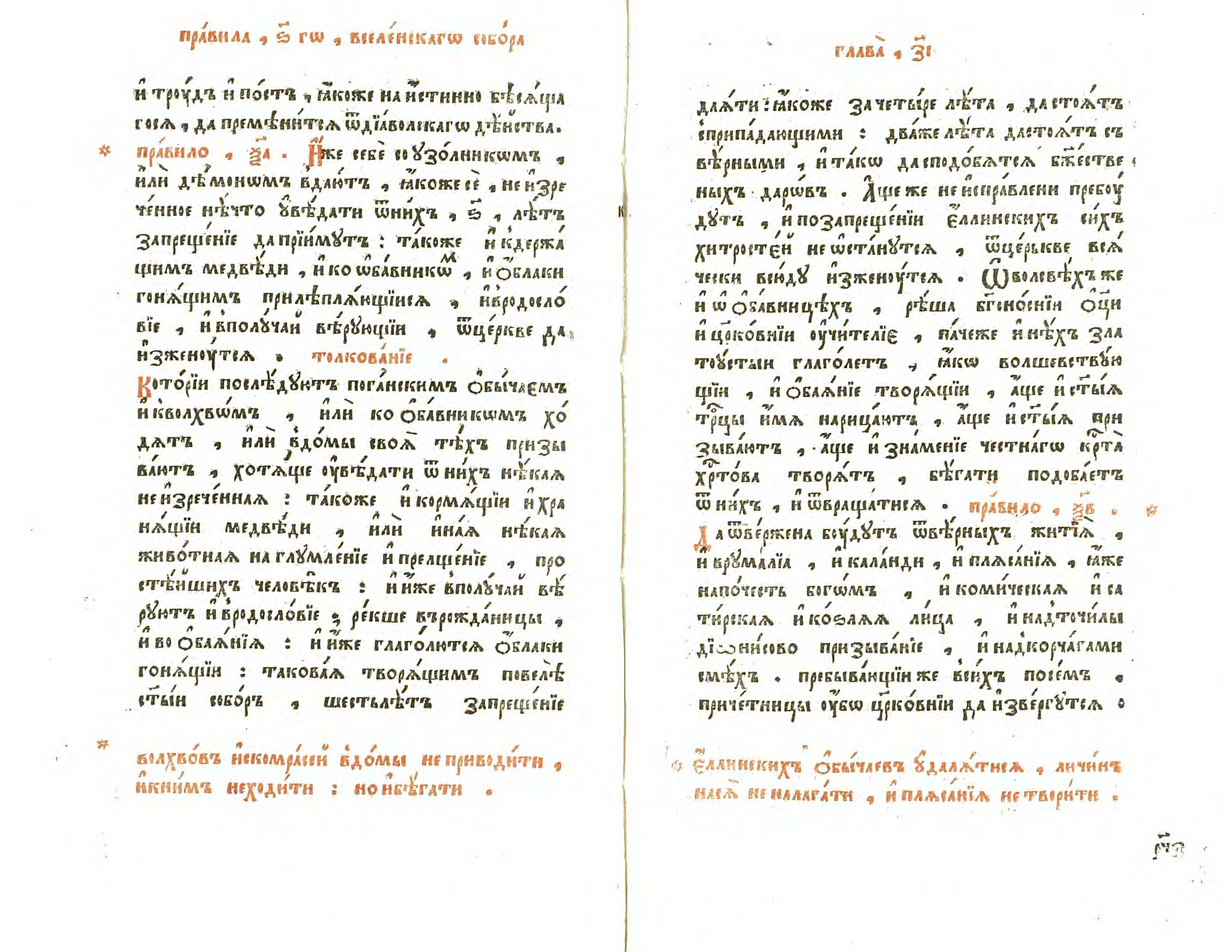 пра́вила , ѕ҃ гѡ , вселе́нскагѡ собо́ра
и҆ трꙋ́дъ и҆ по́стъ , ꙗ҆́коже на и҆́стинно бѣсѧ́ща
госѧ , да премѣни́тсѧ ѿ дїа́вольскагѡ дѣ́йства .
пра́вило , ѯ҃а . И҆̀же себѐ соꙋзо́лникѡмъ ,
и҆лѝ дѣ́монѡмъ вдаю́тъ , ꙗ҆́коже сѐ , не и҆зре
че́нное нѣ́что ᲂу҆вѣ́дати ѿ ни́хъ , ѕ҃ , лѣ́тъ
запреще́нїе да прїи́мꙋтъ : та́коже и҆ к держа́
щимъ медвѣ́ди , и҆ ко ѡ҆ба́вникѡм , и҆ о҆́блаки
гонѧ́щимъ прилѣплѧ́ющїисѧ , и҆ в родосло́
вїе , и҆ в полꙋча́й вѣ́рꙋющїи , ѿ це́ркве да
и҆зженꙋ́тсѧ . толкова́нїе .
Кото́рїи послѣ́дꙋютъ пога́нскимъ ѻ҆бы́чаемъ
и҆ к волхвѡ́мъ , и҆лѝ ко ѻ҆ба́вникѡмъ хо́
дѧтъ , и҆лѝ в до́мы своѧ̀ тѣ́хъ призы
ва́ютъ , хотѧ́ще ᲂу҆вѣ́дати ѿ ни́хъ нѣ́каѧ
не и҆зрече́ннаѧ : та́коже и҆ кормѧ́щїи и҆ хра
нѧ́щїи медвѣ́ди , и҆лѝ и҆на́ѧ нѣ́каѧ
живо́тнаѧ на глꙋмле́нїе и҆ прелще́нїе , про
стѣ́йшихъ человѣ̑къ : и҆ и҆̀же в полꙋча́й вѣ́
рꙋютъ и҆ в родосло́вїе ; ре́кше въ рожда́ницы ,
и҆ во ѻ҆баѧ́нїѧ : и҆ и҆̀же глаго́лютсѧ ѻ҆́блаки
гонѧ́щїи : такова́ѧ творѧ́щимъ повелѣ̀
ст҃ы́й собо́ръ , шесть лѣ́тъ запреще́нїе
волхво́въ и҆ скомра́сей в до́мы не приводи́ти ,
и҆ к ни́мъ не ходи́ти : но и҆ бѣ́гати .
глава̀ , з҃і
даѧ́ти : ꙗ҆́коже за четы́ре лѣ́та , да стоѧ́тъ
с припа́дающими : два́ же лѣ́та да стоѧ́тъ съ
вѣ́рными , и҆ та́кѡ да сподо́бѧтсѧ бж҃е́стве
ныхъ дарѡ́въ . А҆́ще же не и҆спра́влени пребꙋ́
дꙋтъ , и҆ по запреще́нїи є҆́ллинскихъ си́хъ
хитросте́й не ѡ҆ста́нꙋтсѧ , ѿ це́рькве всѧ́
чески всю́дꙋ и҆зженꙋ́тсѧ . Ѿ волсвѣ́хъ же
и҆ ѡ҆ ѻ҆ба́вницѣхъ , рѣ́ша бг҃оно́снїи ѻ҆ц҃ы
и҆ цр҃ко́внїи ᲂу҆чи́телїе , па́че же и҆ нѣ́хъ зла
тоꙋ́стыи глаго́летъ , ꙗ҆́кѡ волшевствꙋ́ю
щїи , и҆ ѻ҆баѧ́нїе творѧ́щїи , а҆́ще и҆ ст҃ы́ѧ
трⷪ҇цы и҆́мѧ нарица́ютъ , а҆́ще и҆ ст҃ы́ѧ при
зыва́ютъ , а҆́ще и҆ зна́менїе честна́гѡ крⷭ҇та̀
хрⷭ҇то́ва творѧ́тъ , бѣ́гати подоба́етъ
ѿ ни́хъ , и҆ ѿвраща́тисѧ . пра́вило , ѯ҃в .
Да ѿве́ржена бꙋ́дꙋтъ ѿ вѣ́рныхъ житїѧ̀ ,
и҆ врꙋма́лїа , и҆ кала́нди , и҆ плѧса́нїѧ , ꙗ҆́же
на по́честь бого́мъ , и҆ коми́ческаѧ и҆ са
ти́рскаѧ и҆ ко́злѧѧ ли́ца , и҆ над точи́лы
дїѡни́сово призыва́нїе , и҆ над корча́гами
смѣ́хъ . пребыва́ющїи же в си́хъ по се́мъ .
приче́тницы ᲂу҆́бѡ цр҃ко́внїи да и҆зве́ргꙋтсѧ .
є҆́ллинскихъ ѻ҆бы́чаевъ ᲂу҆далѧ́тисѧ , личи́нъ
на сѧ̀ не налага́ти , и҆ плѧса́нїѧ не твори́ти .
рч҃з